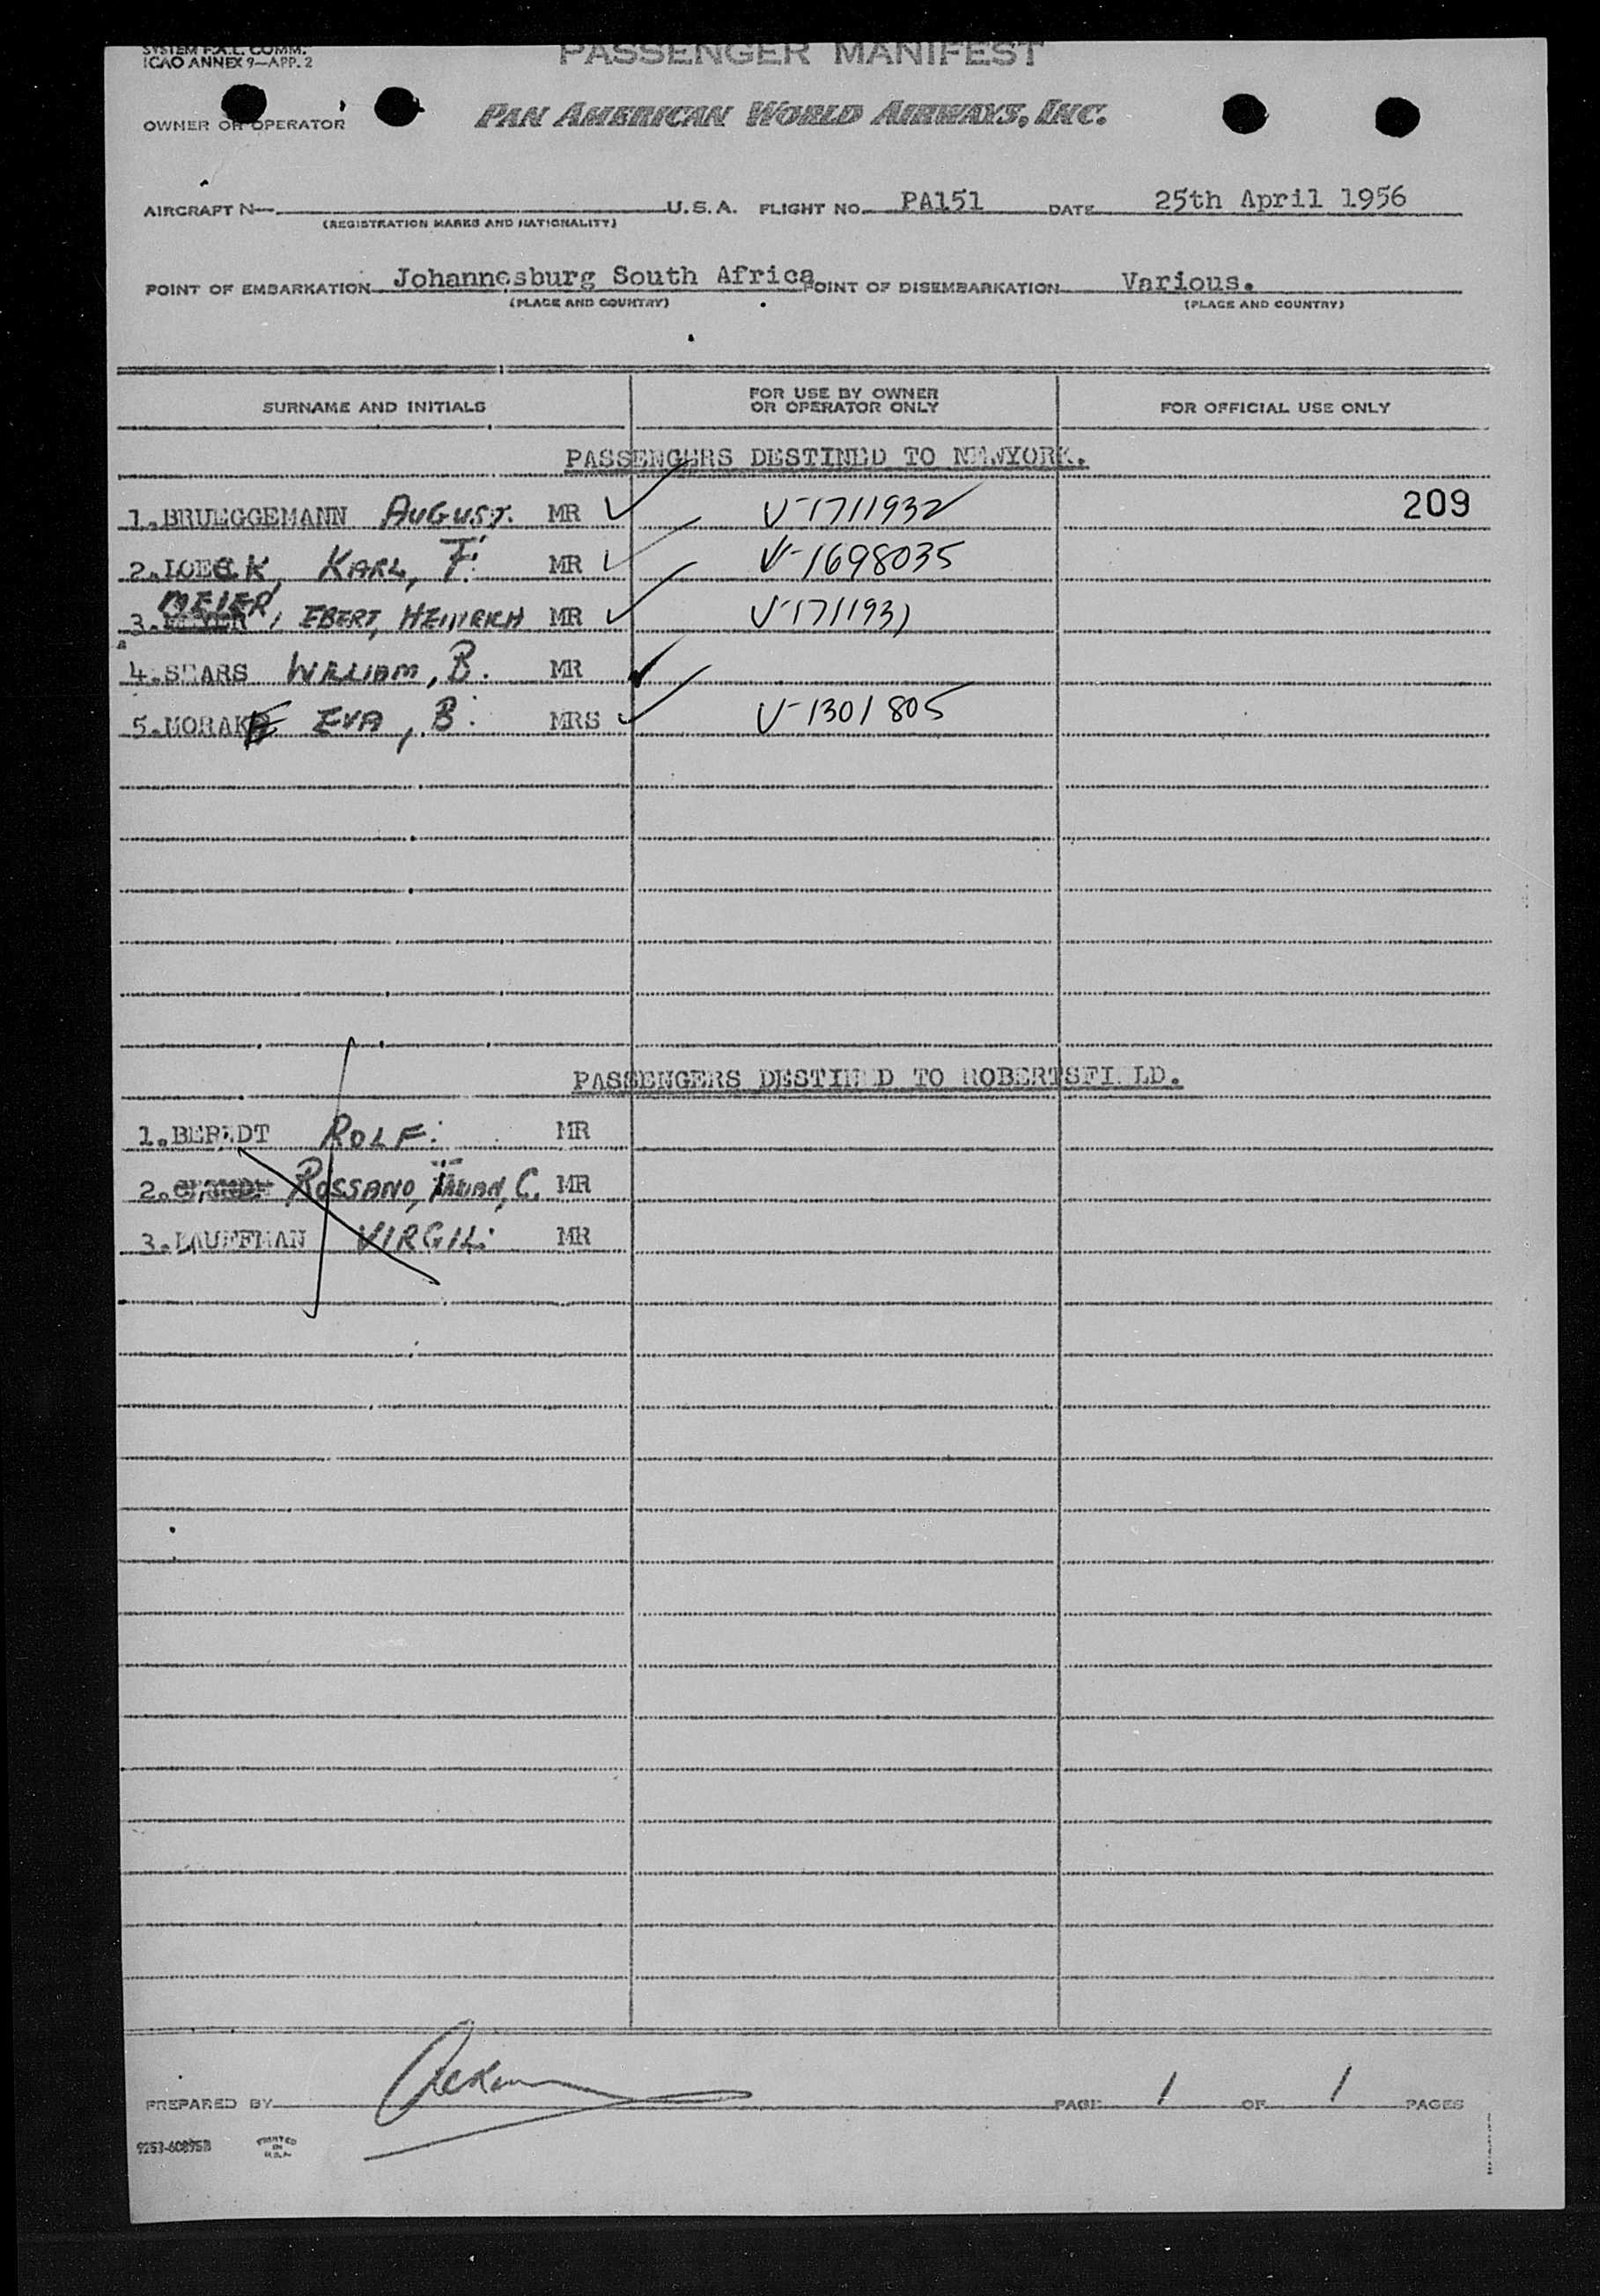 SYSTEM F.A.L. COMM.
ICAO ANNEX 9—APP. 2
PASSENGER MANIFEST
OWNER OR OPERATOR PAN AMERICAN WORLD AIRWAYS, INC.
AIRCRAFT N— U.S.A. FLIGHT NO. PA151 DATE 25th April 1956
(REGISTRATION MARKS AND NATIONALITY)
POINT OF EMBARKATION Johannesburg South Africa POINT OF DISEMBARKATION Various.
(PLACE AND COUNTRY) (PLACE AND COUNTRY)
SURNAME AND INITIALS FOR USE BY OWNER OR OPERATOR ONLY FOR OFFICIAL USE ONLY
PASSENGERS DESTINED TO NEWYORK.
1. BRUEGGEMANN AUGUST. MR V-1711932 209
2. LOECK, KARL, F. MR V-1698035
MEIER
3. MEYER, EBERT, HEINRICH MR V-1711931
4. SEARS WILLIAM, B. MR
5. MORAKE EVA, B. MRS V-1301805
PASSENGERS DESTINED TO ROBERTSFIELD.
1. BERNDT ROLF. MR
2. ROSSANO, C. MR
3. KAUFFMAN VIRGIL. MR
PREPARED BY PAGE 1 OF 1 PAGES
9253-60895B PRINTED IN U.S.A.